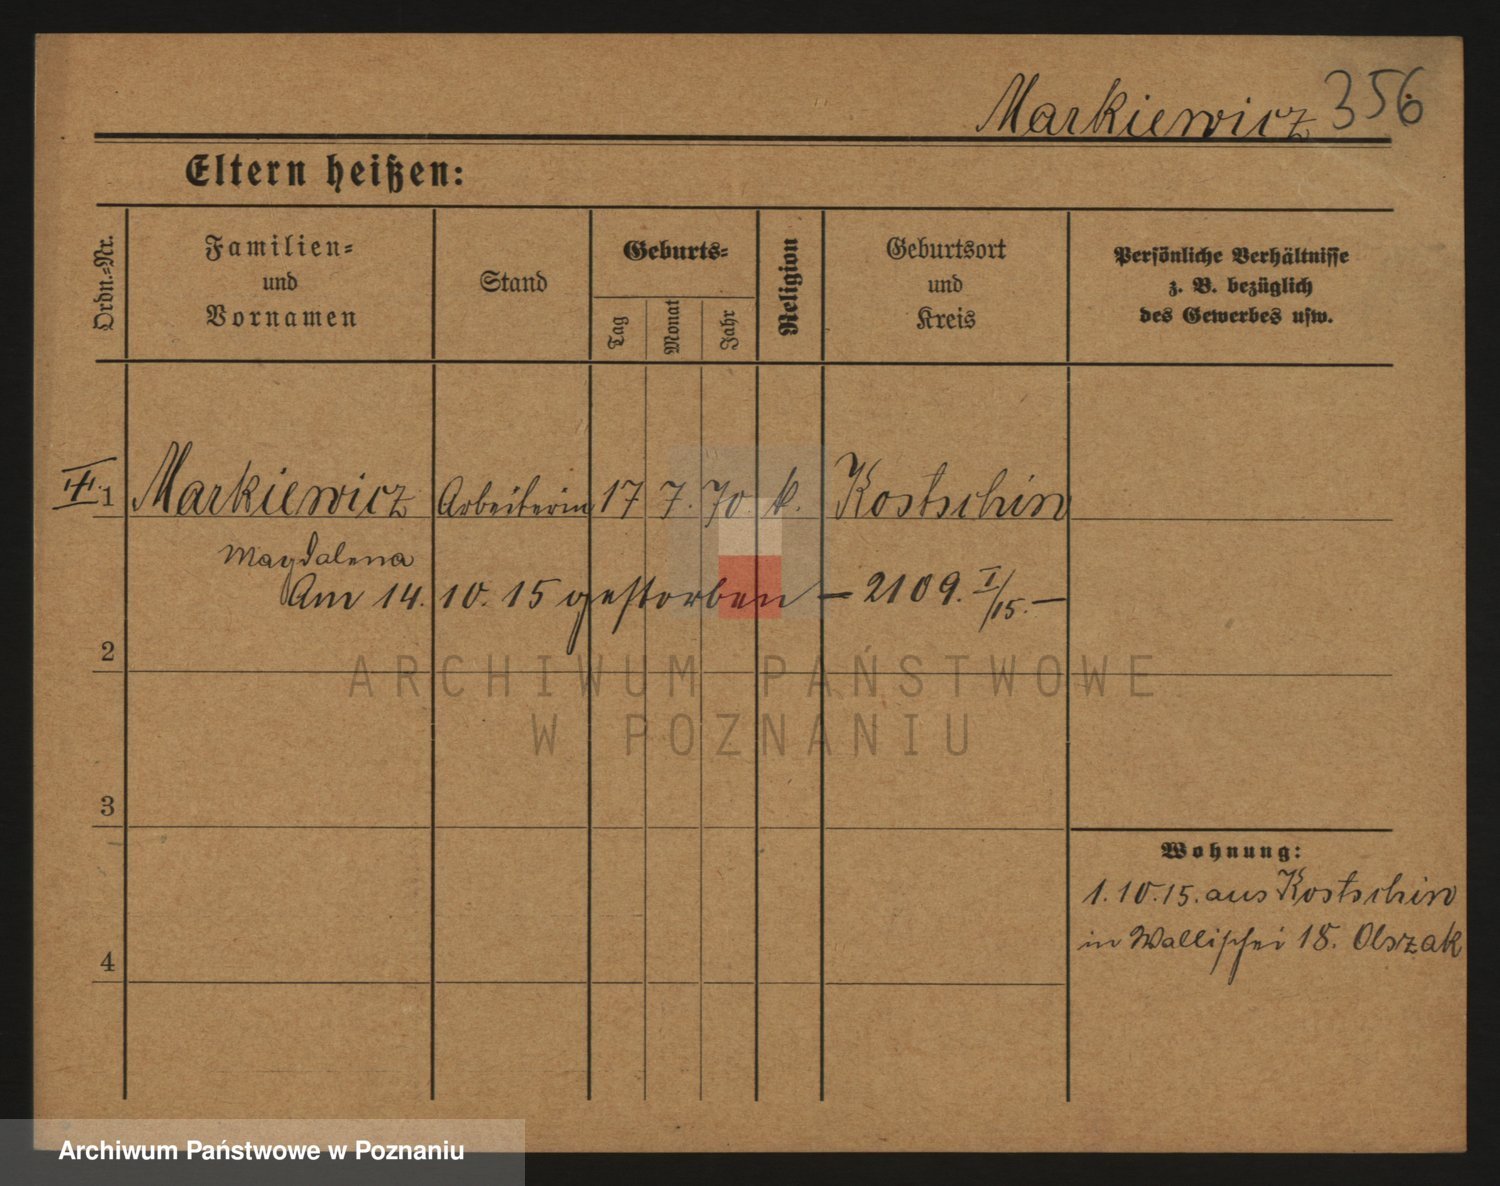 Markiewicz 356
Eltern heißen:
Ordn.=Nr.
Familien=
und
Vornamen
Stand
Geburts=
Tag
Monat
Jahr
Religion
Geburtsort
und
Kreis
Persönliche Verhältnisse
z. B. bezüglich
des Gewerbes usw.
1 Markiewicz Arbeiterin 17 7. 70. k. Kostschin
Magdalena
Am 14. 10. 15 gestorben – 2109. I/15. –
2
3
4
Wohnung:
1. 10. 15. aus Kostschin
in Wallischei 18. Olszak
ARCHIWUM PAŃSTWOWE
W POZNANIU
Archiwum Państwowe w Poznaniu